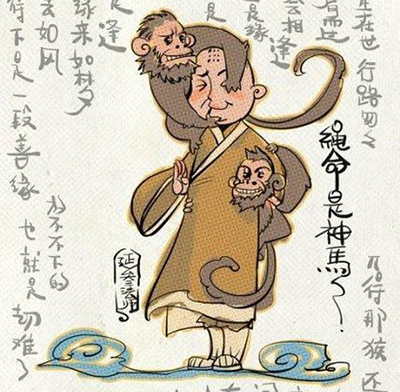 生在世 行路匆々
行那猴还
会相逢
是缘
繩命是神馬~!
延参法师
逢
缘来如梦
去如风
不下的
行下是一段善缘 也就是劫难了